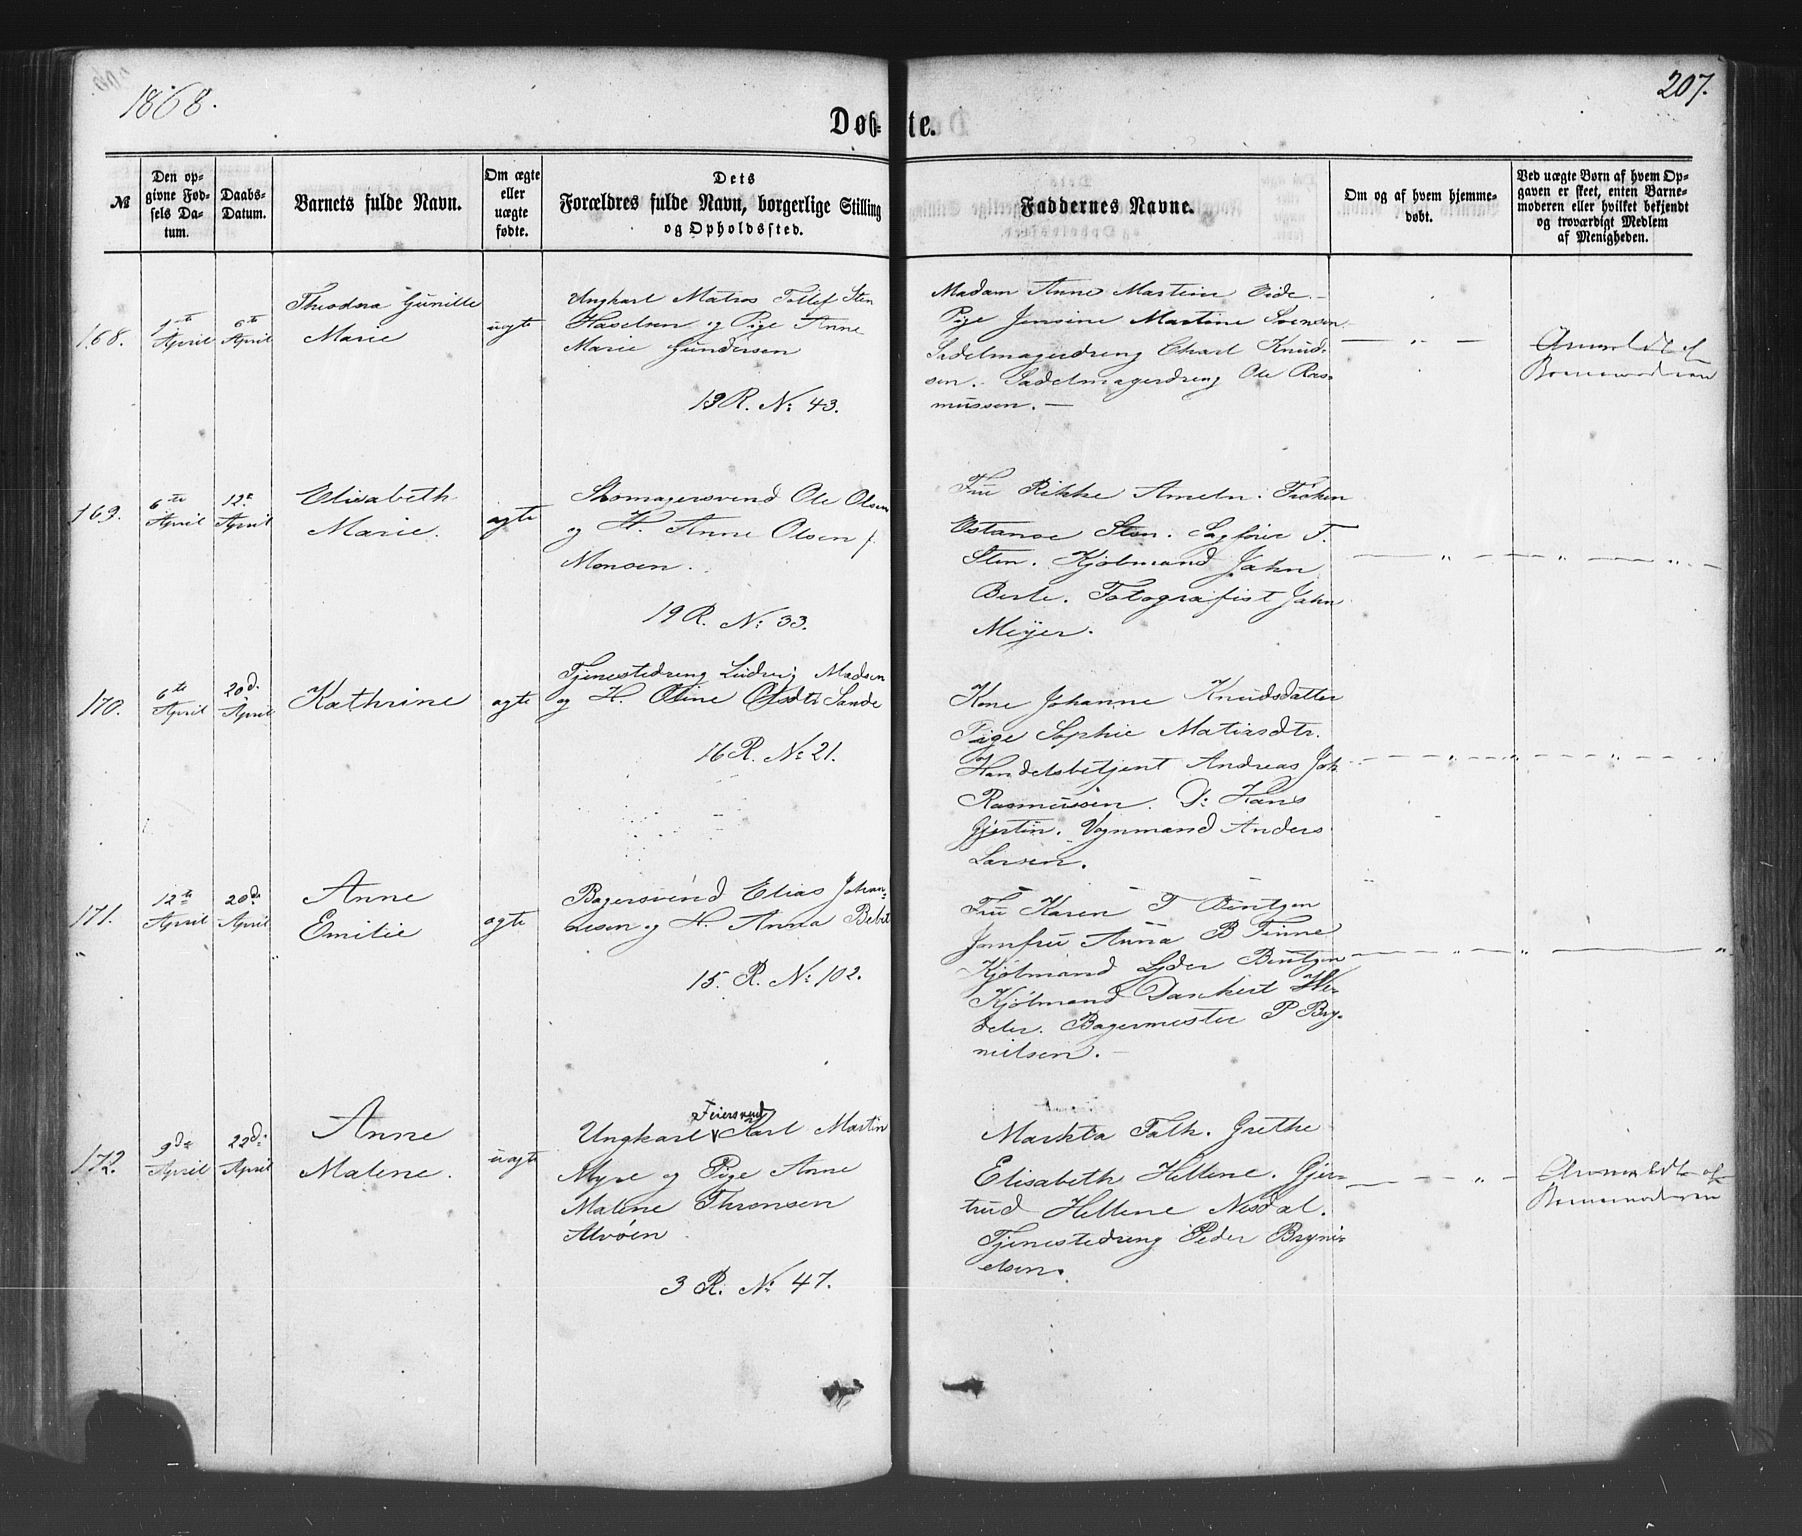 1868.
207.
Døb- te.
№
Den op-
givne Fød-
sels Da-
tum.
Daabs-
Datum.
Barnets fulde Navn.
Om ægte
eller
uægte
fødte.
Dets
Forældres fulde Navn, borgerlige Stilling
og Opholdssted.
Faddernes Navne.
Om og af hvem hjemme-
døbt.
Ved uægte Børn af hvem Op-
gaven er skeet, enten Barne-
moderen eller hvilket bekjendt
og troværdigt Medlem
af Menigheden.
168.
April
6te
April
Theodora Gunille
Marie
uægte
Ungkarl Matros Tollef Sten
Haselsen og Pige Anne
Marie Gundersen
13 R. No: 43.
Madam Anne Martine Eide.
Pige Jensine Martine Svensen
Sadelmagerdreng Charl Knud-
sen. Sadelmagerdreng Ole Ras-
mussen.
Anmeldt af
Barnemoderen
169.
6te
April
12te
April
Elisabeth
Marie.
ægte
Skomagersvend Ole Olsen
og H. Anne Olsen f.
Monsen.
19 R. No: 33.
Fru Rikke Ameln. Frøken
Sten. Sagfører F.
Sten. Kjøbmand Jahn
Berle. Fotografist Jahn
Meÿer.
170.
6te
April
20de
April
Kathrine
ægte
Tjenestedreng Ludvig Madsen
og H. Oline Olsdtr Sande
16 R. No: 21.
Kone Johanne Knudsdatter
Pige Sophie Matisdtr.
Handelsbetjent Andreas Joh
Rasmussen. Do: Hans
Gjertin. Vognmand Anders
Larsen.
171.
12te
April
20de
April
Anne
Emilie
ægte
Bagersvend Elias Johan-
nesen og H. Anna
15. R. No: 102.
Fru Karen T Bentzen
Jomfru Anna B Finne
Kjøbmand Lyder Bentzen
Kjøbmand Danckert
Bagermester P Bry-
nielsen.
172.
9de
April
22de
April
Anne
Malene.
uægte
Feiersvend
Ungkarl Karl Martin
Myre og Pige Anne
Malene Thronsen
Alvøen
3 R. No: 47.
Markta Falk. Grethe
Elisabeth Hellene. Gjer-
trud Hellene Nesdal.
Tjenestedreng Peder Bryni-
elsen.
Anmeldt af
Barnemoderen